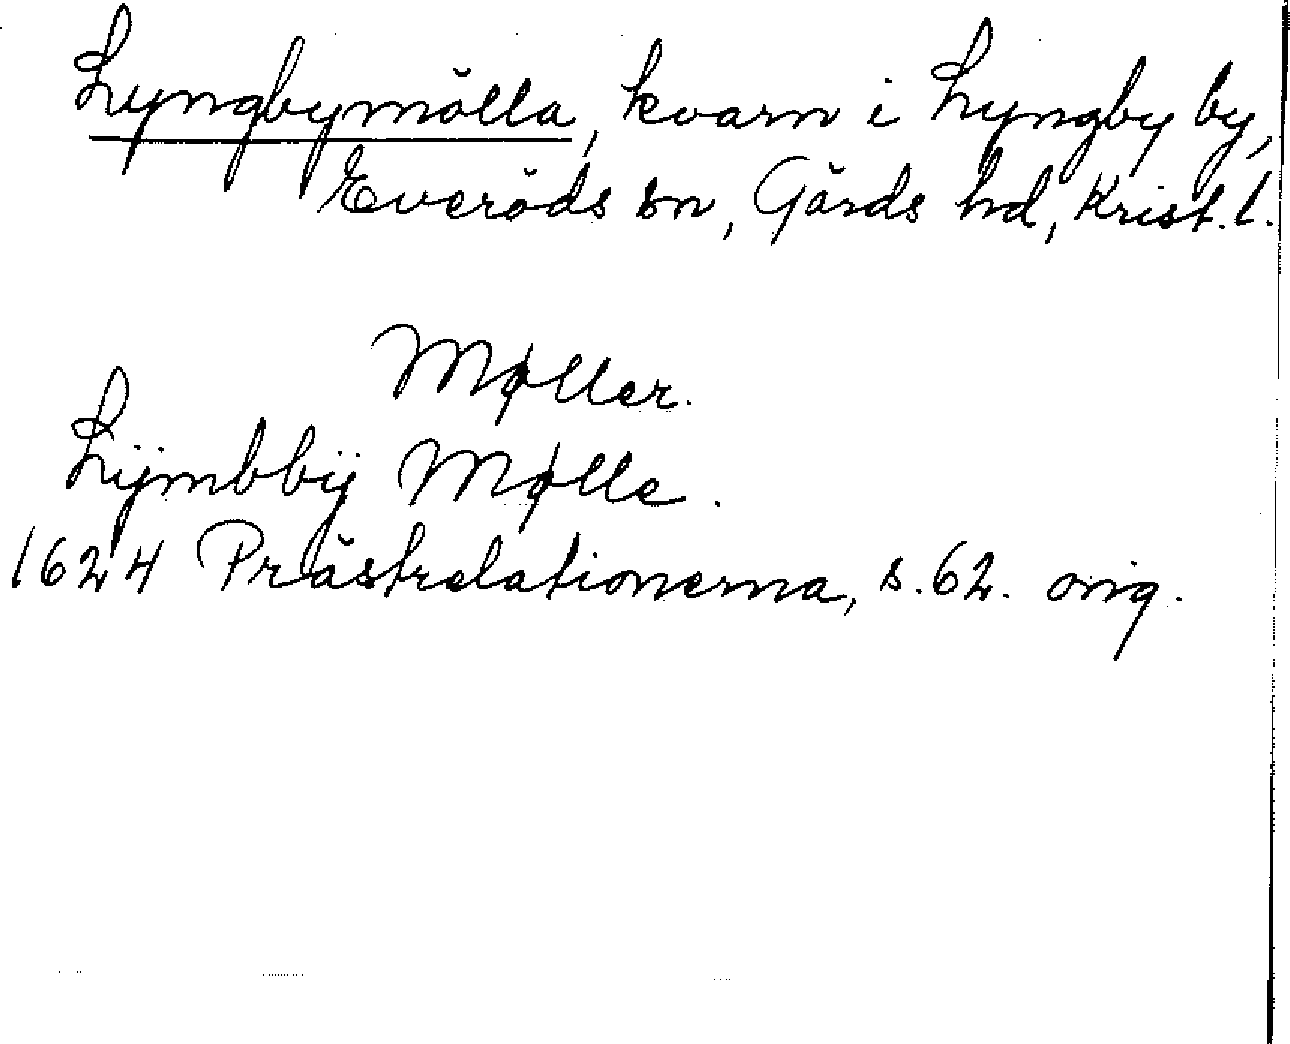 Lyngbymölla, kvarn i Lyngby by,
Everöds sn, Gärds hd, Krist. l.
Møller.
Lÿmbbÿ Mølle.
1624 Prästrelationerna, s. 62. orig.